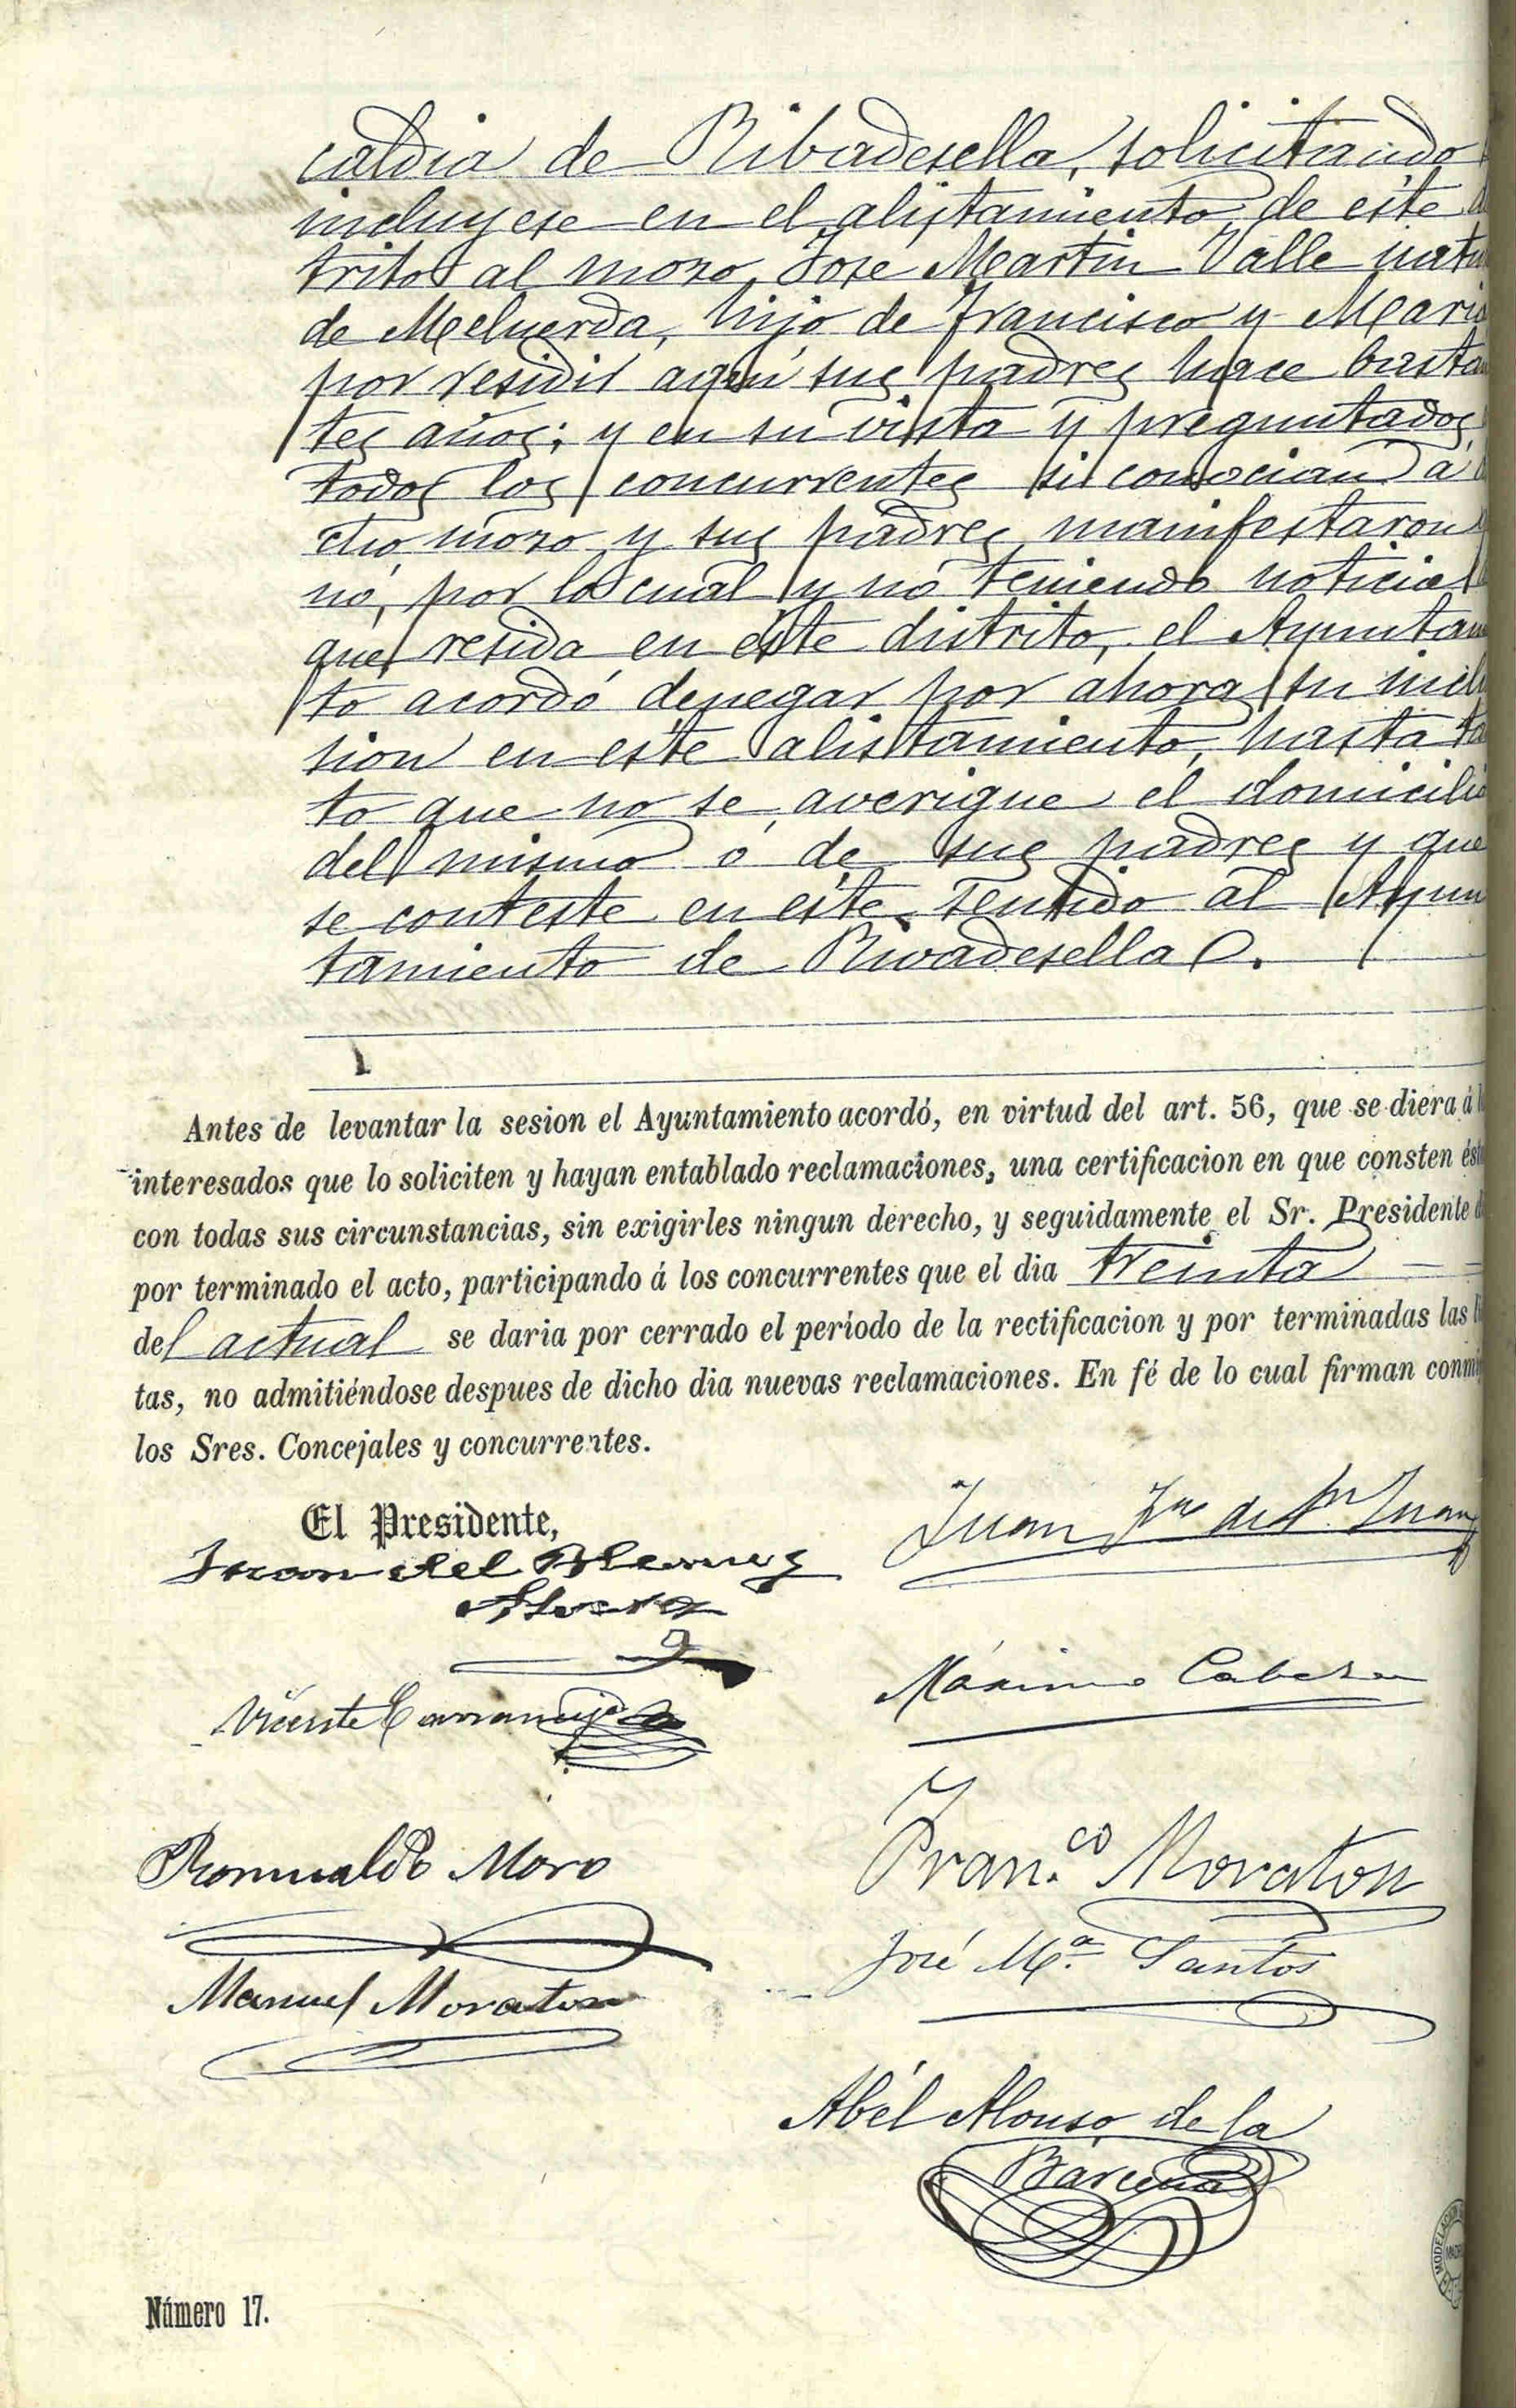 caldia de Ribadesella, solicitando
incluyese en el alistamiento de este
trito al mozo Jose Martin Valle natu
de Meluerda, hijo de Francisco y Maria
por residir aquí sus padres hace bastan
tes años; y en su vista y preguntados
todos los concurrentes si conocian á
dho mozo y sus padres manifestaron
nó, por lo cual y no teniendo noticia
que resida en éste distrito, el Ayuntam
to acordó denegar por ahora su inclu
sion en este alistamiento, hasta tan
to que no se averigue el domicilio
del mismo ó de sus padres y que
se conteste en este sentido al Ayun
tamiento de Rivadesella.
Antes de levantar la sesion el Ayuntamiento acordó, en virtud del art. 56, que se diera á
interesados que lo soliciten y hayan entablado reclamaciones, una certificacion en que consten ést
con todas sus circunstancias, sin exigirles ningun derecho, y seguidamente el Sr. Presidente d
por terminado el acto, participando á los concurrentes que el dia treinta
del actual se daria por cerrado el período de la rectificacion y por terminadas las li
tas, no admitiéndose despues de dicho dia nuevas reclamaciones. En fé de lo cual firman conmi
los Sres. Concejales y concurrentes.
El Presidente,
Juan del
Juan Fz de Sn Juan
Alvarez
Máximo Cabeza
Vicente Carrandi
Romualdo Moro
Fran.co Moraton
José Mª. Santos
Manuel Moraton
Abél Alonso de la
Bárcena
Número 17.